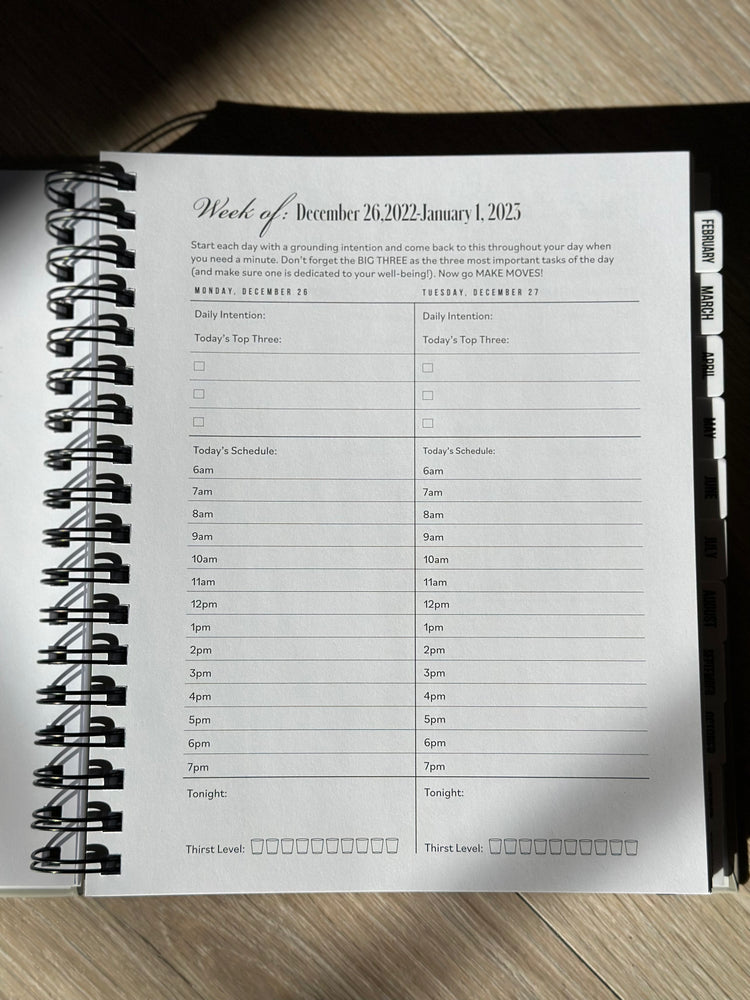 Week of: December 26,2022-January 1, 2023
Start each day with a grounding intention and come back to this throughout your day when
you need a minute. Don't forget the BIG THREE as the three most important tasks of the day
(and make sure one is dedicated to your well-being!). Now go MAKE MOVES!
MONDAY, DECEMBER 26
Daily Intention:
Today's Top Three:
Today's Schedule:
6am
7am
8am
9am
10am
11am
12pm
1pm
2pm
3pm
4pm
5pm
6pm
7pm
Tonight:
Thirst Level:
TUESDAY, DECEMBER 27
Daily Intention:
Today's Top Three:
Today's Schedule:
6am
7am
8am
9am
10am
11am
12pm
1pm
2pm
3pm
4pm
5pm
6pm
7pm
Tonight:
Thirst Level:
FEBRUARY
MARCH
APRIL
MAY
JUNE
JULY
AUGUST
SEPTEMBER
OCTOBER